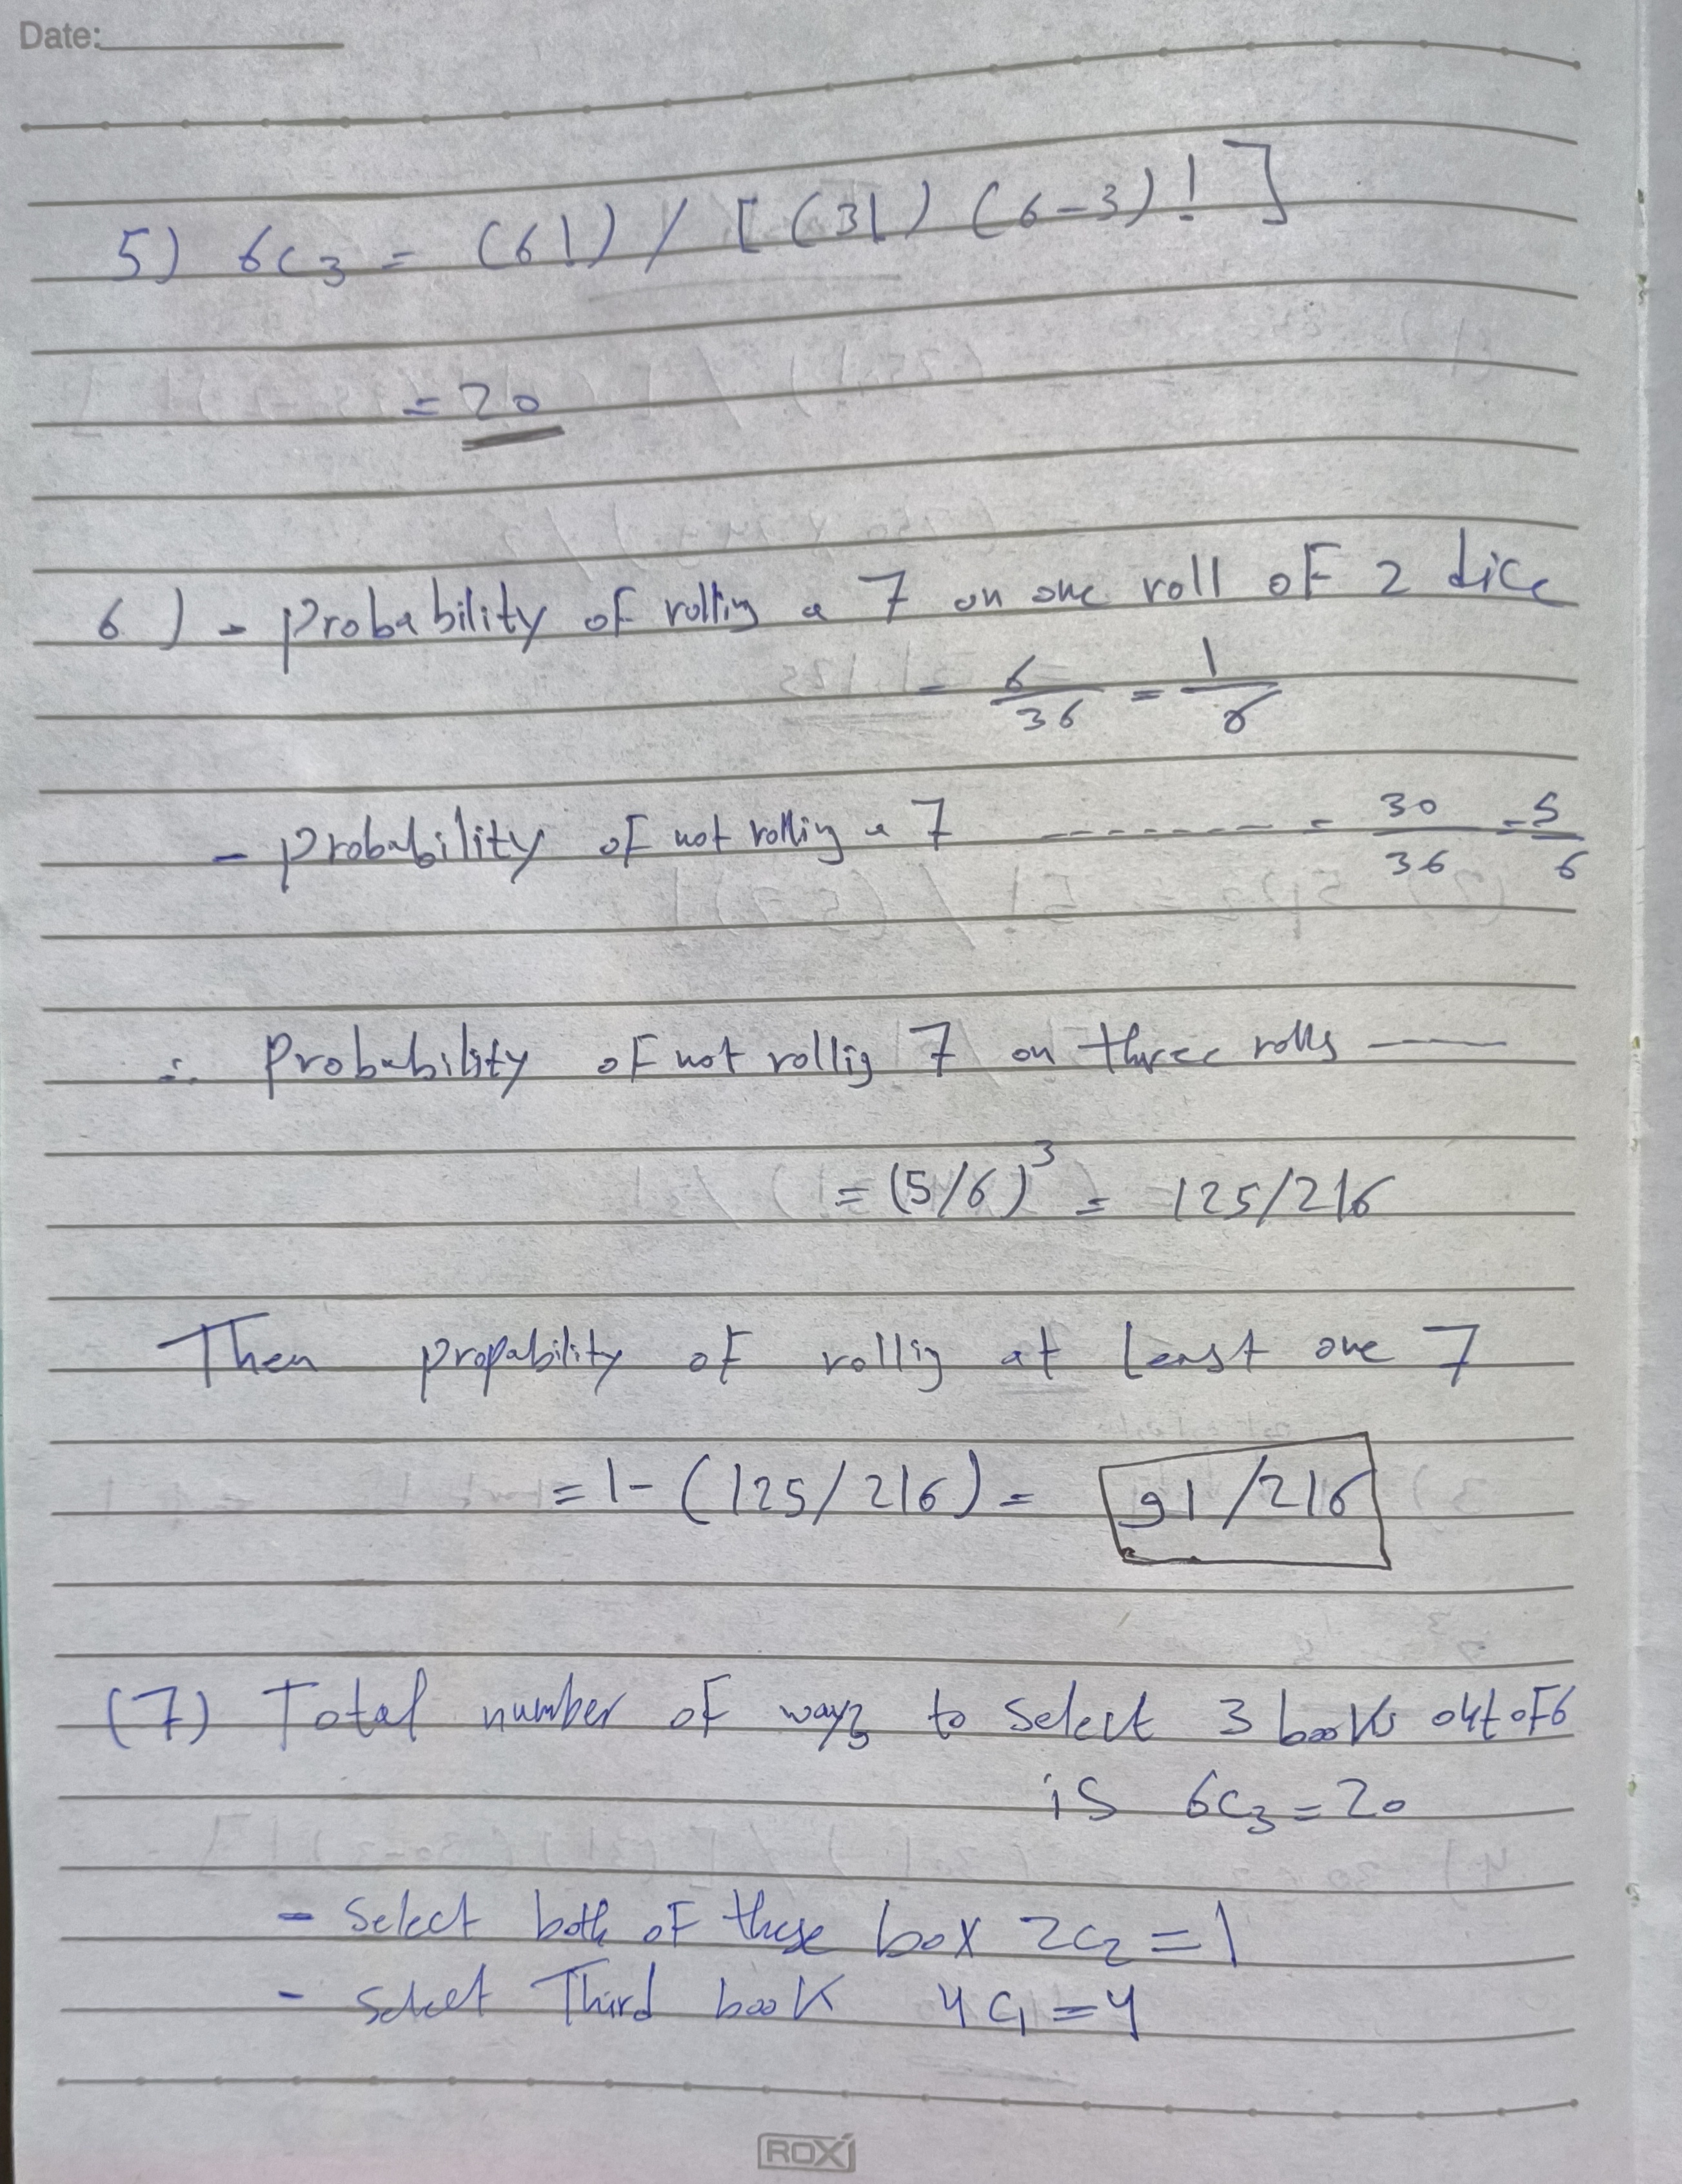 Date:
5) 6C3 = (6!) / [(3!) (6-3)!]
= 20
6) - Probability of rolling a 7 on one roll of 2 dice
= 6/36 = 1/6
- Probability of not rolling a 7 ------- = 30/36 = 5/6
∴ Probability of not rollig 7 on three rolls ——
= (5/6)³ = 125/216
Then propability of rollig at least one 7
= 1 - (125/216) = 91/216
(7) Total number of ways to select 3 books out of 6
is 6C3 = 20
- Select both of these box 2C2 = 1
- select Third book 4C1 = 4
ROXI